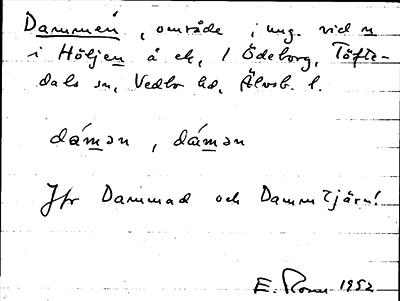 Dammen, område i ung. vid n
i Höljen å ek, 1 Ödeborg, Töfte-
dals sn, Vedbo hd, Älvsb. l.
dámən, dámən
Jfr Dammad och Dammtjärn!
E. 1952